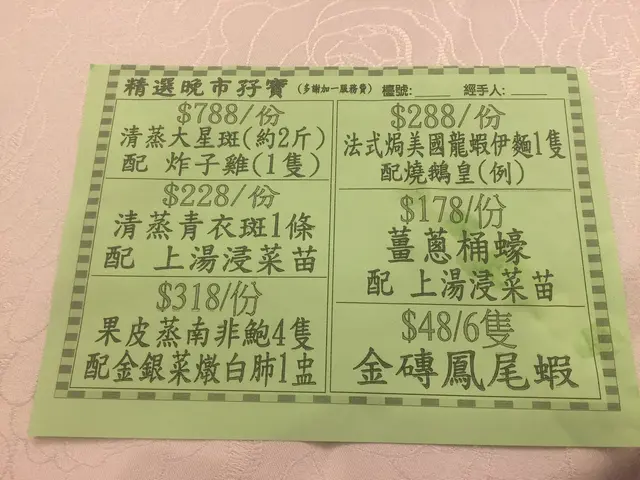 精選晚市孖寶 (多謝加一服務費) 檯號:____ 經手人:____
$788/份
清蒸大星斑(約2斤)
配 炸子雞(1隻)
$228/份
清蒸青衣斑1條
配 上湯浸菜苗
$318/份
果皮蒸南非鮑4隻
配金銀菜燉白肺1盅
$288/份
法式焗美國龍蝦伊麵1隻
配燒鵝皇(例)
$178/份
薑蔥桶蠔
配 上湯浸菜苗
$48/6隻
金磚鳳尾蝦